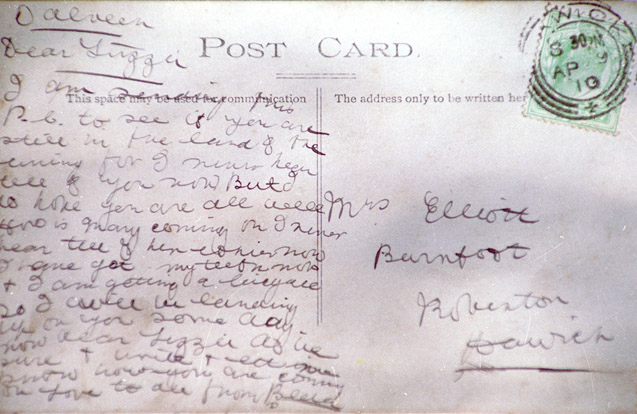 Dalveen
Dear Lizzie
POST CARD.
This space may be used for communication
The address only to be written her
I am sending this
P.C. to see if you are
still in the land of the
living for I never hear
tell of you now But I
do hope you are all well
How is Mary coming on I never
hear tell of her either now
I have got my teeth now
& I am getting a
so I will be landing
up on you some day
now dear Lizzie be
sure & write & let me
know how you are coming
on love to all from
Mrs Elliott
Burnfoot
Roberton
Hawick
AP
10